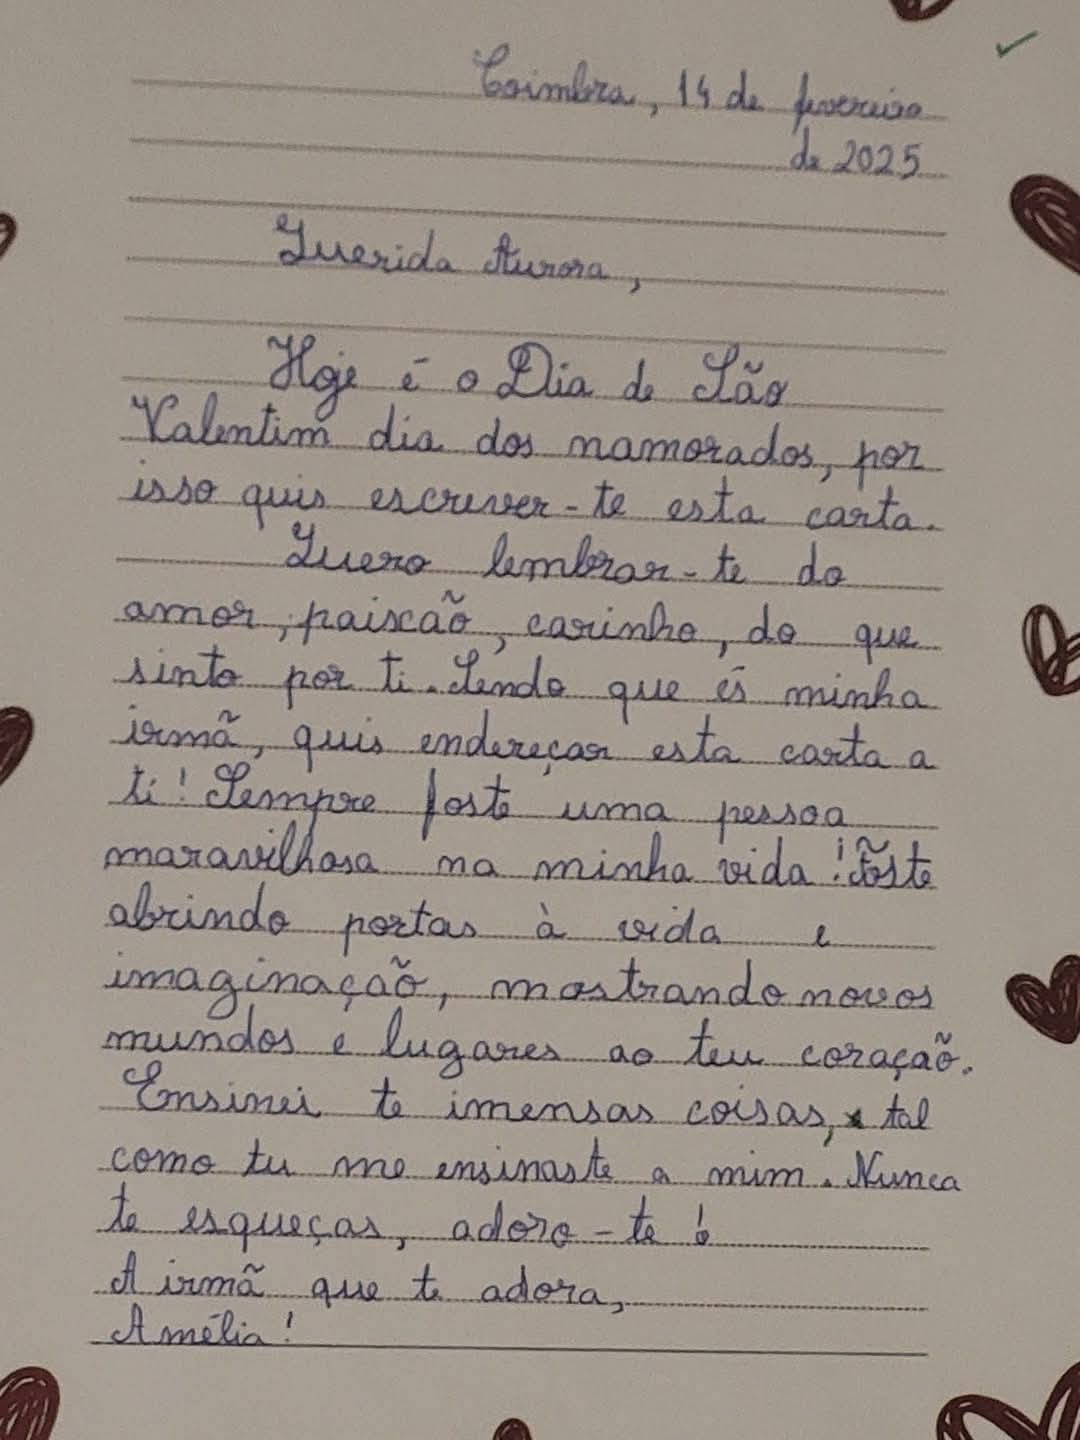 Coimbra, 14 de fevereiro
de 2025
Querida Aurora,
Hoje é o Dia de São
Valentim dia dos namorados, por
isso quis escrever-te esta carta.
Quero lembrar-te do
amor, paixão, carinho, do que
sinto por ti. Sendo que és minha
irmã, quis endereçar esta carta a
ti! Sempre foste uma pessoa
maravilhosa na minha vida! Foste
abrindo portas à vida e
imaginação, mostrando novos
mundos e lugares ao teu coração.
Ensinei te imensas coisas, tal
como tu me ensinaste a mim. Nunca
te esqueças, adoro-te!
A irmã que te adora,
Amélia!